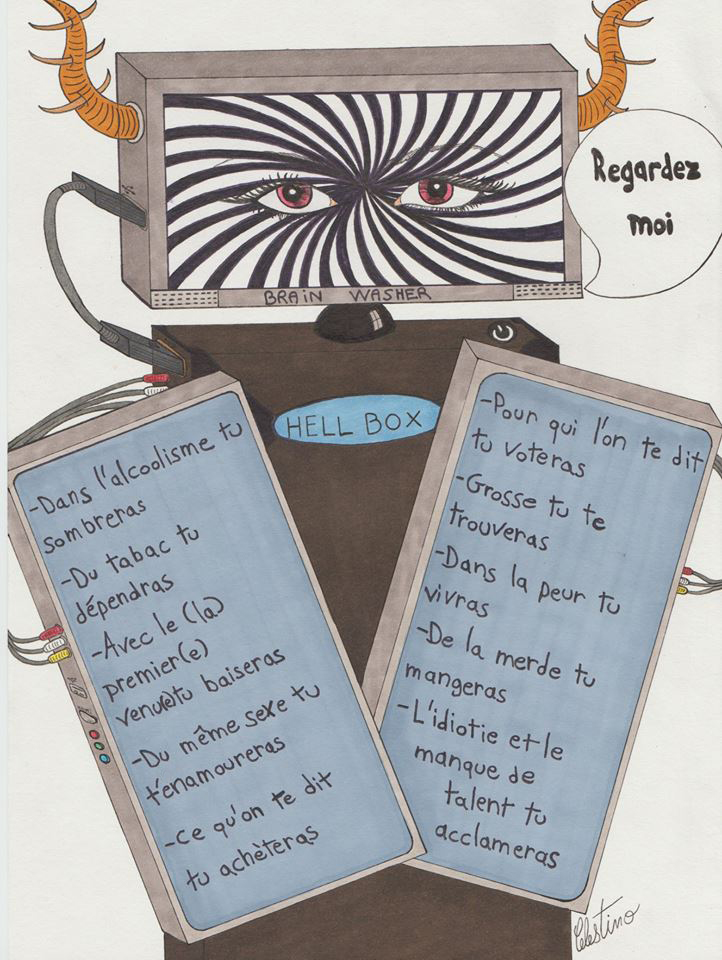 Regardez
moi
BRAIN WASHER
HELL BOX
-Dans l'alcoolisme tu
sombreras
-Du tabac tu
dépendras
-Avec le (la)
premier(e)
venu(e)tu baiseras
-Du même sexe tu
t'enamoureras
-Ce qu'on te dit
tu achèteras
-Pour qui l'on te dit
tu voteras
-Grosse tu te
trouveras
-Dans la peur tu
vivras
-De la merde tu
mangeras
-L'idiotie et le
manque de
talent tu
acclameras
Celestino